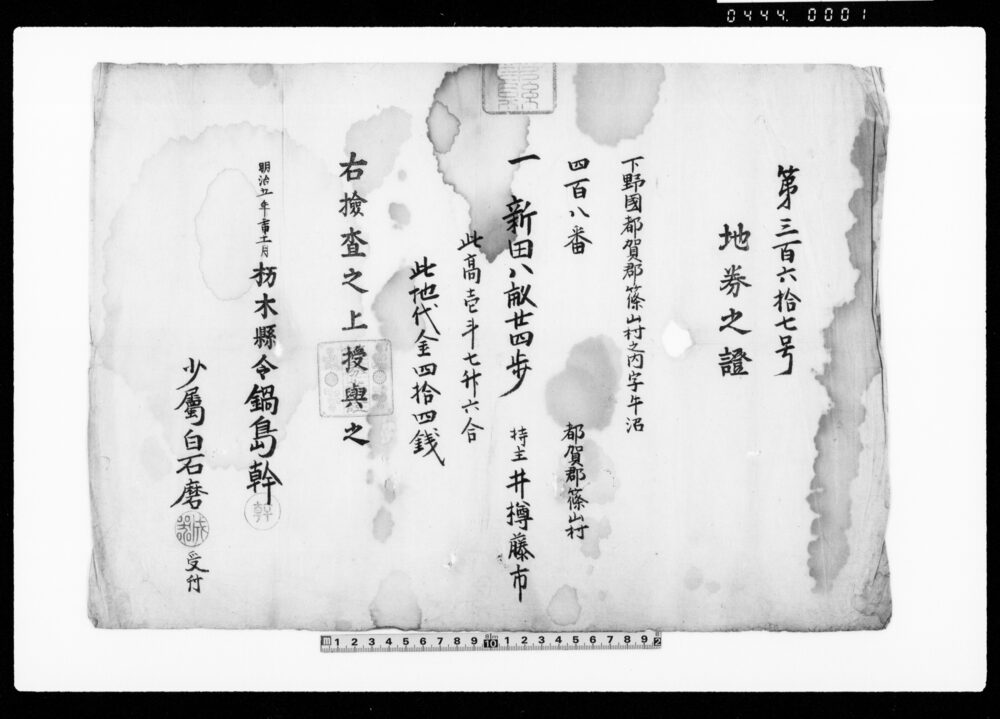 0444. 0001
第三百六拾七号
地券之證
下野國都賀郡篠山村之内字牛沼
四百八番
都賀郡篠山村
一 新田八畝廿四歩
持主 井樽藤市
此高壱斗七升六合
此地代金四拾四銭
右撿査之上授與之
明治五年壬申十一月 栃木縣令鍋島幹
幹
少屬白石磨
受付
1 2 3 4 5 6 7 8 9 10 1 2 3 4 5 6 7 8 9 2